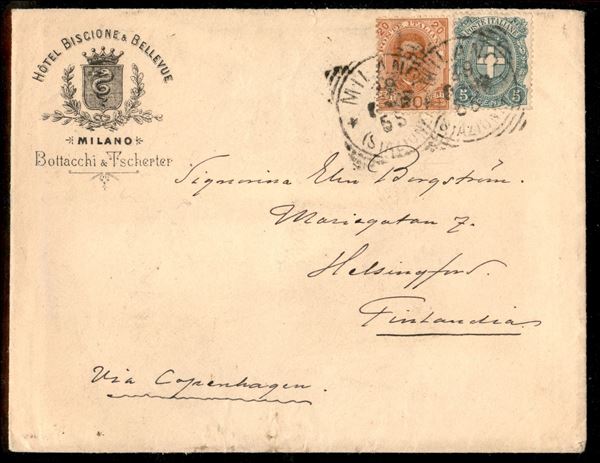 HÔTEL BISCIONE & BELLEVUE
MILANO
Bottacchi & Tscherter
20 20
POSTE ITALIANE
5 5
MILANO
(STAZIONE)
MILANO
(STAZIONE)
Signorina Elin Bergström.
Mariegatan 7.
Helsingford.
Finlandia.
Via Copenhagen.